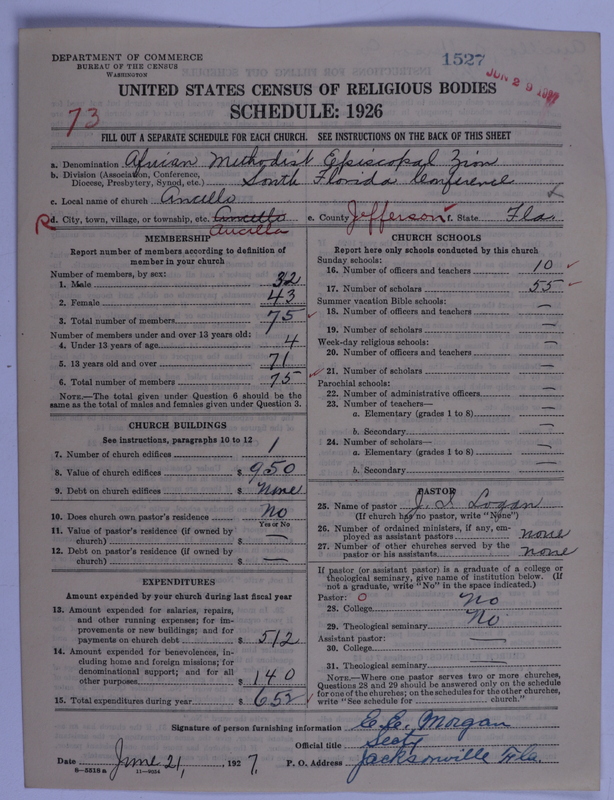 DEPARTMENT OF COMMERCE
BUREAU OF THE CENSUS
WASHINGTON
1527
JUN 29 1927
UNITED STATES CENSUS OF RELIGIOUS BODIES
SCHEDULE: 1926
73
FILL OUT A SEPARATE SCHEDULE FOR EACH CHURCH. SEE INSTRUCTIONS ON THE BACK OF THIS SHEET
a. Denomination African Methodist Episcopal Zion
b. Division (Association, Conference, Diocese, Presbytery, Synod, etc.) South Florida Conference
c. Local name of church Ancilla
R d. City, town, village, or township, etc. Ancilla Aucilla e. County Jefferson f. State Fla.
MEMBERSHIP
Report number of members according to definition of
member in your church
Number of members, by sex:
1. Male 32
2. Female 43
3. Total number of members 75
Number of members under and over 13 years old:
4. Under 13 years of age 4
5. 13 years old and over 71
6. Total number of members 75
NOTE.—The total given under Question 6 should be
same as the total of males and females given under Question 3.
CHURCH BUILDINGS
See instructions, paragraphs 10 to 12
7. Number of church edifices 1
8. Value of church edifices $ 950
9. Debt on church edifices $ None
10. Does church own pastor's residence No
Yes or No
11. Value of pastor's residence (if owned by
church) $ —
12. Debt on pastor's residence (if owned by
church) $ —
EXPENDITURES
Amount expended by your church during last fiscal year
13. Amount expended for salaries, repairs,
and other running expenses; for im-
provements or new buildings; and for
payments on church debt $ 512
14. Amount expended for benevolences, in-
cluding home and foreign missions; for
denominational support; and for all
other purposes $ 140
15. Total expenditures during year $ 652
CHURCH SCHOOLS
Report here only schools conducted by this church
Sunday schools:
16. Number of officers and teachers 10
17. Number of scholars 55
Summer vacation Bible schools:
18. Number of officers and teachers —
19. Number of scholars —
Week-day religious schools:
20. Number of officers and teachers —
21. Number of scholars —
Parochial schools:
22. Number of administrative officers —
23. Number of teachers—
a. Elementary (grades 1 to 8) —
b. Secondary —
24. Number of scholars—
a. Elementary (grades 1 to 8) —
b. Secondary —
PASTOR
25. Name of pastor J. S. Logan
(If church has no pastor, write "None")
26. Number of ordained ministers, if any, em-
ployed as assistant pastors none
27. Number of other churches served by the
pastor or his assistants none
If pastor (or assistant pastor) is a graduate of a college or
theological seminary, give name of institution below. (If
not a graduate, write "No" in the space indicated.)
Pastor: 0
28. College No
29. Theological seminary No
Assistant pastor:
30. College —
31. Theological seminary —
NOTE.—Where one pastor serves two or more churches,
Questions 28 and 29 should be answered only on the schedule
for one of the churches; on the schedules for the other churches,
write "See schedule for church."
Signature of person furnishing information C. C. Morgan
Official title Secty
Date June 21, 1927. P. O. Address Jacksonville Fla.
8-3518 a 11-9024